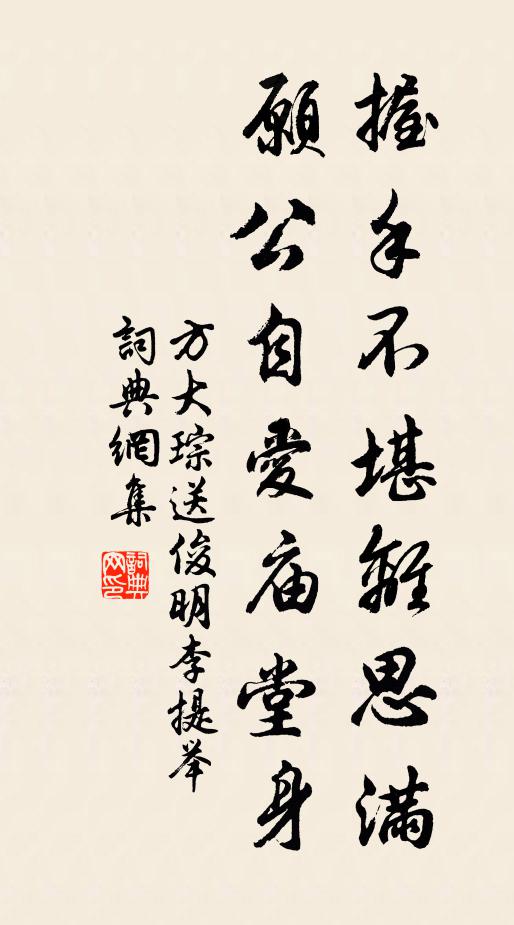 握手不堪離思滿
願公自愛庙堂身
方大琮送俊明李提举
詞典網集
詞典網印